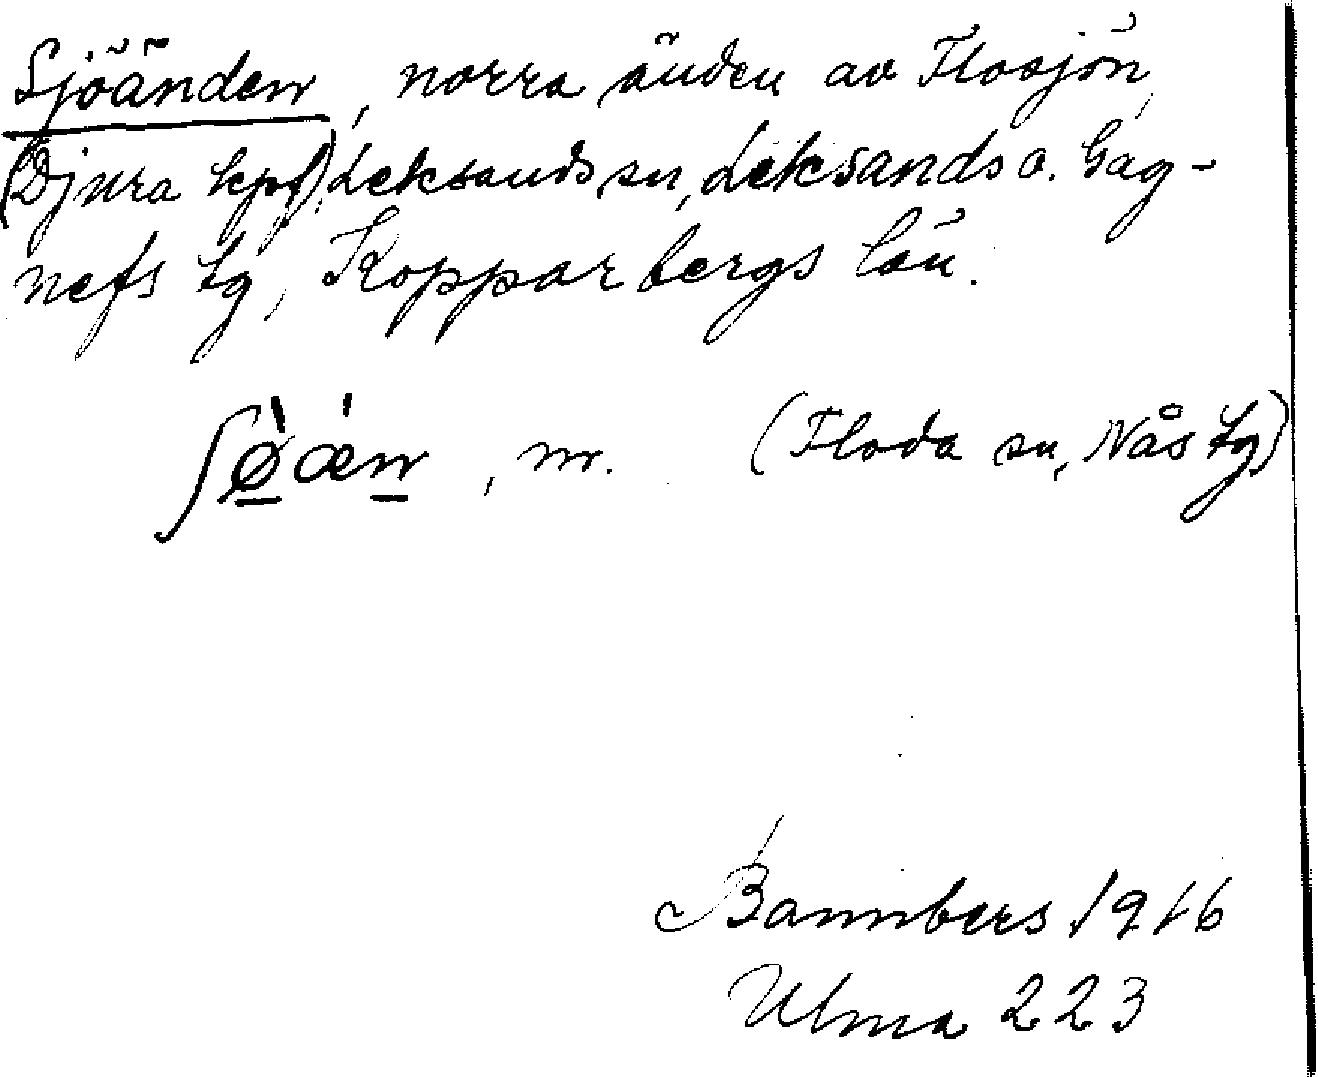 Sjöänden, norra änden av Flosjön,
(Djura kpf) Leksands sn, Leksands o. Gag-
nefs tg, Kopparbergs län.
ʃø̀ǽn, m. (Floda sn, Nås tg)
Bannbers 1916
Ulma 223